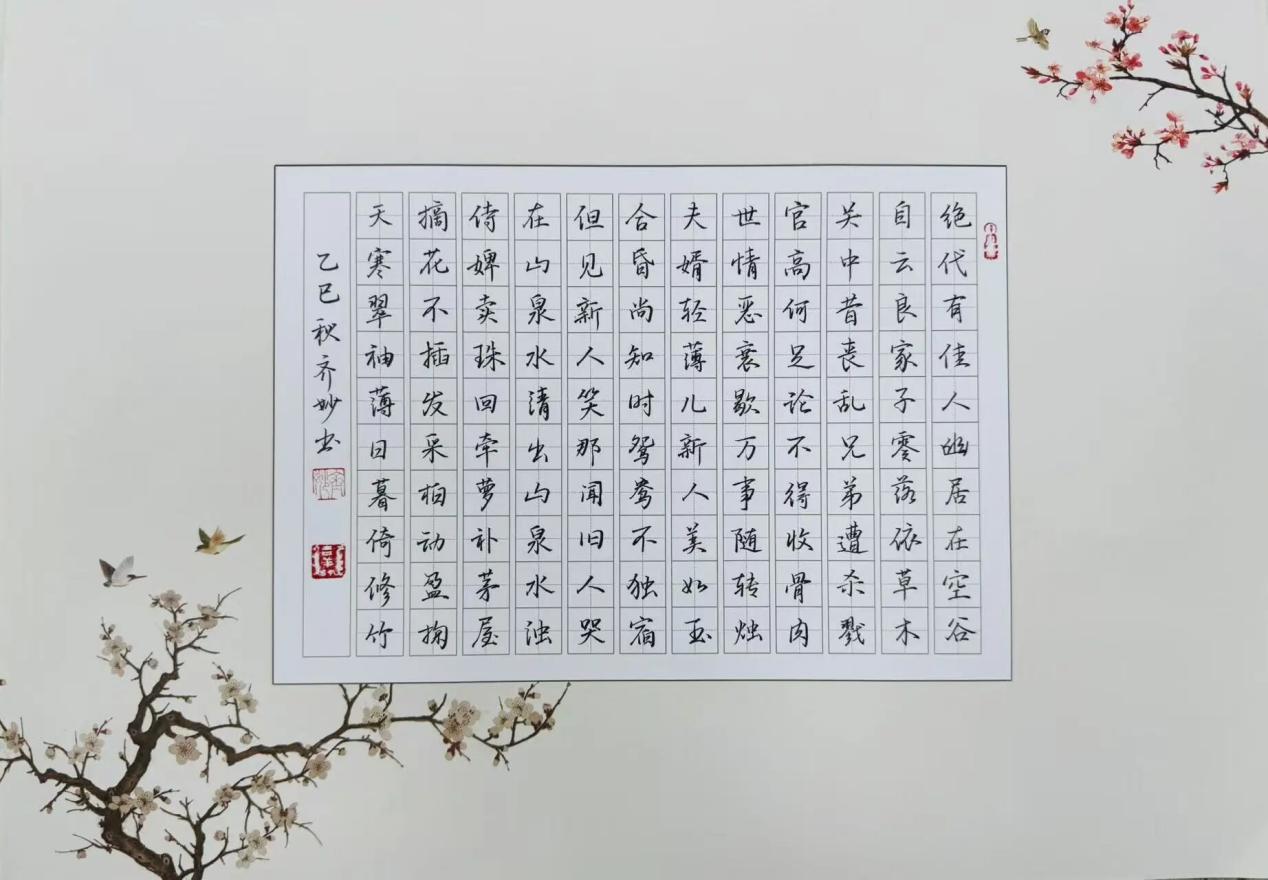 绝代有佳人幽居在空谷
自云良家子零落依草木
关中昔丧乱兄弟遭杀戮
官高何足论不得收骨肉
世情恶衰歇万事随转烛
夫婿轻薄儿新人美如玉
合昏尚知时鸳鸯不独宿
但见新人笑那闻旧人哭
在山泉水清出山泉水浊
侍婢卖珠回牵萝补茅屋
摘花不插发采柏动盈掬
天寒翠袖薄日暮倚修竹
乙巳秋齐妙书